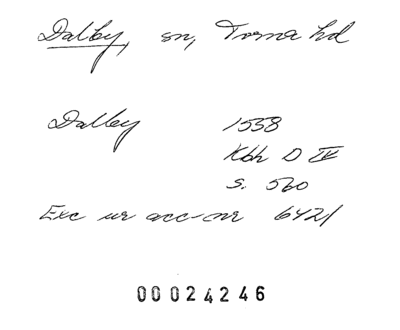 Dalby, sn, Torna hd
Dalby 1558
Kbh D IV
s. 560
Exc ur acc-nr 6421
00024246